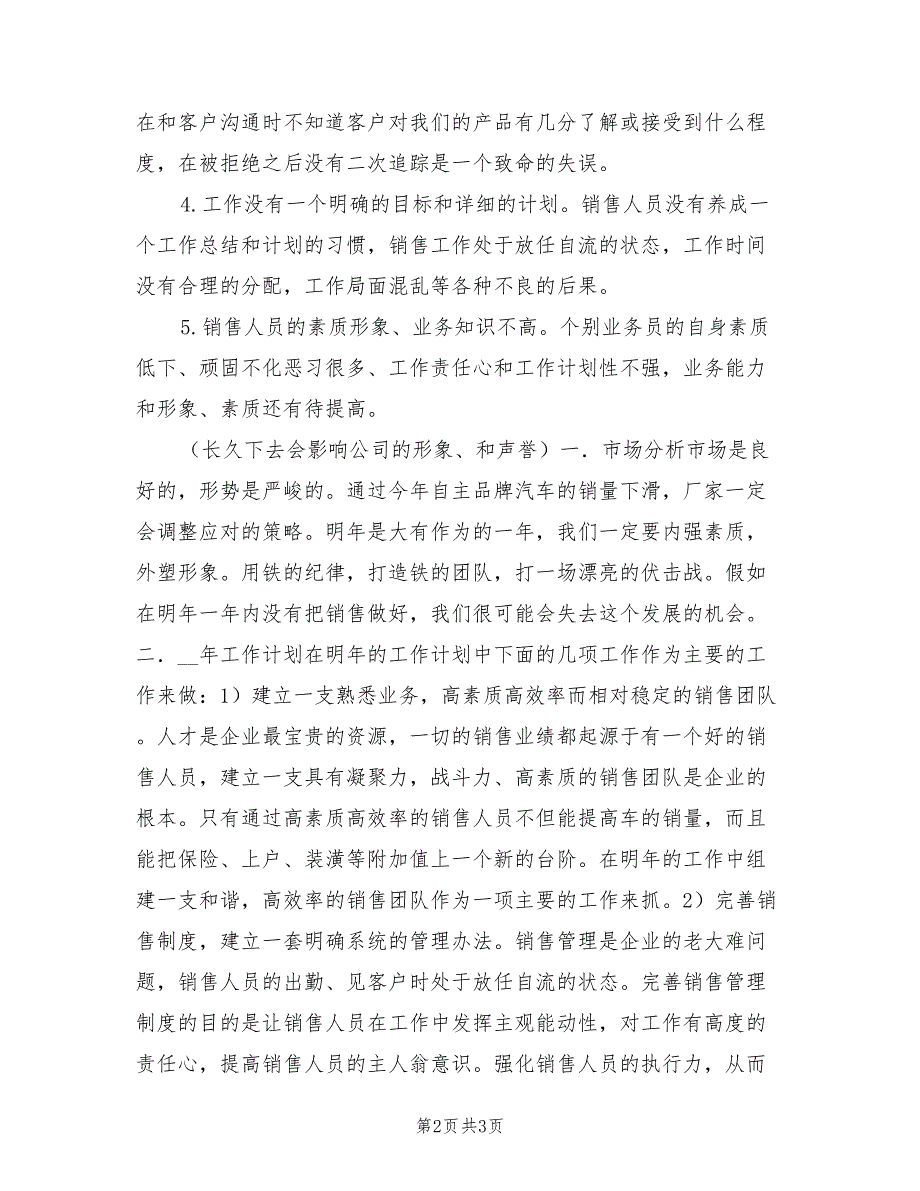 在和客户沟通时不知道客户对我们的产品有几分了解或接受到什么程
度，在被拒绝之后没有二次追踪是一个致命的失误。
4.工作没有一个明确的目标和详细的计划。销售人员没有养成一
个工作总结和计划的习惯，销售工作处于放任自流的状态，工作时间
没有合理的分配，工作局面混乱等各种不良的后果。
5.销售人员的素质形象、业务知识不高。个别业务员的自身素质
低下、顽固不化恶习很多、工作责任心和工作计划性不强，业务能力
和形象、素质还有待提高。
（长久下去会影响公司的形象、和声誉）一．市场分析市场是良
好的，形势是严峻的。通过今年自主品牌汽车的销量下滑，厂家一定
会调整应对的策略。明年是大有作为的一年，我们一定要内强素质，
外塑形象。用铁的纪律，打造铁的团队，打一场漂亮的伏击战。假如
在明年一年内没有把销售做好，我们很可能会失去这个发展的机会。
二．__年工作计划在明年的工作计划中下面的几项工作作为主要的工
作来做：1）建立一支熟悉业务，高素质高效率而相对稳定的销售团队
。人才是企业最宝贵的资源，一切的销售业绩都起源于有一个好的销
售人员，建立一支具有凝聚力，战斗力、高素质的销售团队是企业的
根本。只有通过高素质高效率的销售人员不但能提高车的销量，而且
能把保险、上户、装潢等附加值上一个新的台阶。在明年的工作中组
建一支和谐，高效率的销售团队作为一项主要的工作来抓。2）完善销
售制度，建立一套明确系统的管理办法。销售管理是企业的老大难问
题，销售人员的出勤、见客户时处于放任自流的状态。完善销售管理
制度的目的是让销售人员在工作中发挥主观能动性，对工作有高度的
责任心，提高销售人员的主人翁意识。强化销售人员的执行力，从而
第2页 共3页